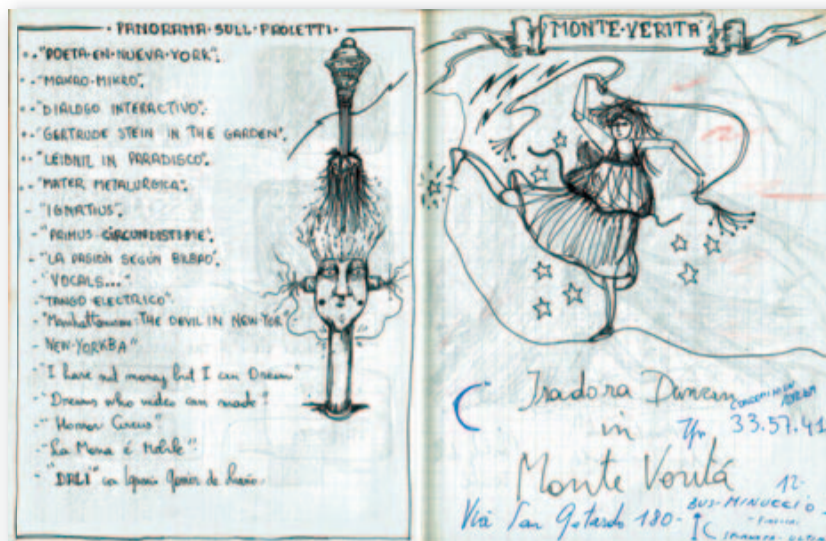 PANORAMA · SULL · PAOLETTI ·
"POETA · EN · NUEVA · YORK".
"MAKRO-MIKRO".
"DIALOGO INTERACTIVO".
"GERTRUDE STEIN IN THE GARDEN".
"LEIBNIZ IN PARADISCO".
"MATER METALURGICA".
- "IGNATIUS".
- "PRIMUS CIRCUMDISTI ME".
- "LA PASIÓN SEGÚN BILBAO".
- "VOCALS..."
- "TANGO ELECTRICO".
- "Manhattan : THE DEVIL IN NEW YOR"
- NEW-YORKBA"
- "I have not money but I can Dream"
- "Dreams who video can made"
- "Horror Circus"
- "La Mona é Mobile".
- "DALI" con Ignacio de
MONTE · VERITÀ
Isadora Duncan
in
33.57.41
Monte Veritá
12-
Via San Gotardo 180-
BUS-MINUCCIO-